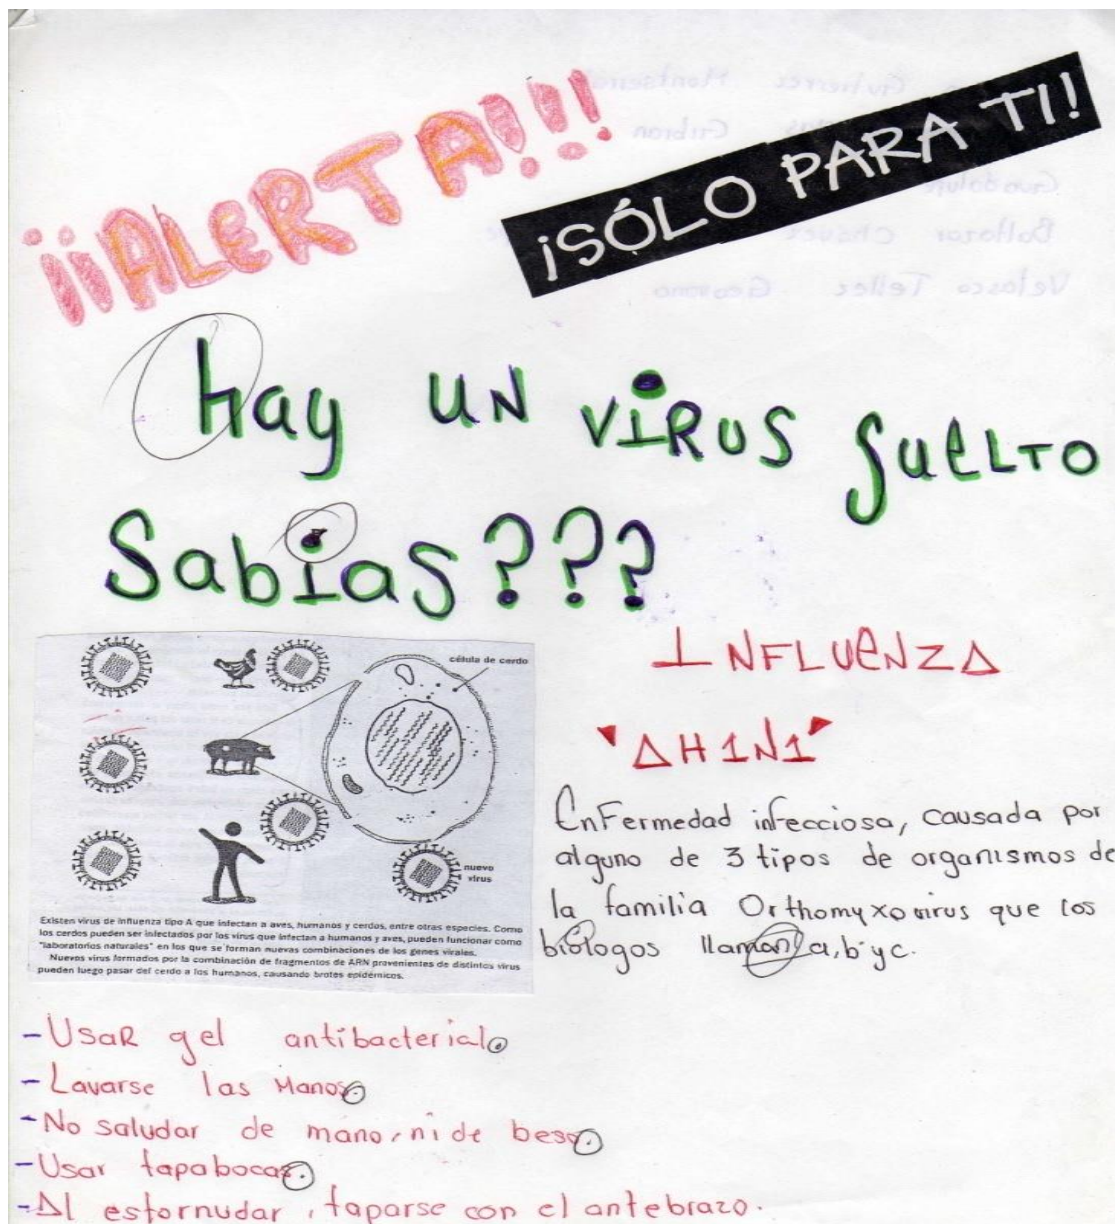 ¡¡ALERTA!!!
¡SÓLO PARA TI!
Hay UN VIRUS SUELTO
Sabías???
célula de cerdo
nuevo
virus
Existen virus de influenza tipo A que infectan a aves, humanos y cerdos, entre otras especies. Como
los cerdos pueden ser infectados por los virus que infectan a humanos y aves, pueden funcionar como
"laboratorios naturales" en los que se forman nuevas combinaciones de los genes virales.
Nuevos virus formados por la combinación de fragmentos de ARN provenientes de distintos virus
pueden luego pasar del cerdo a los humanos, causando brotes epidémicos.
INFLUENZA
"AH1N1"
Enfermedad infecciosa, causada por
alguno de 3 tipos de organismos de
la familia Orthomyxovirus que los
biólogos llaman a, b y c.
- Usar gel antibacterial.
- Lavarse las Manos.
- No saludar de mano, ni de beso.
- Usar tapabocas.
- Al estornudar, taparse con el antebrazo.